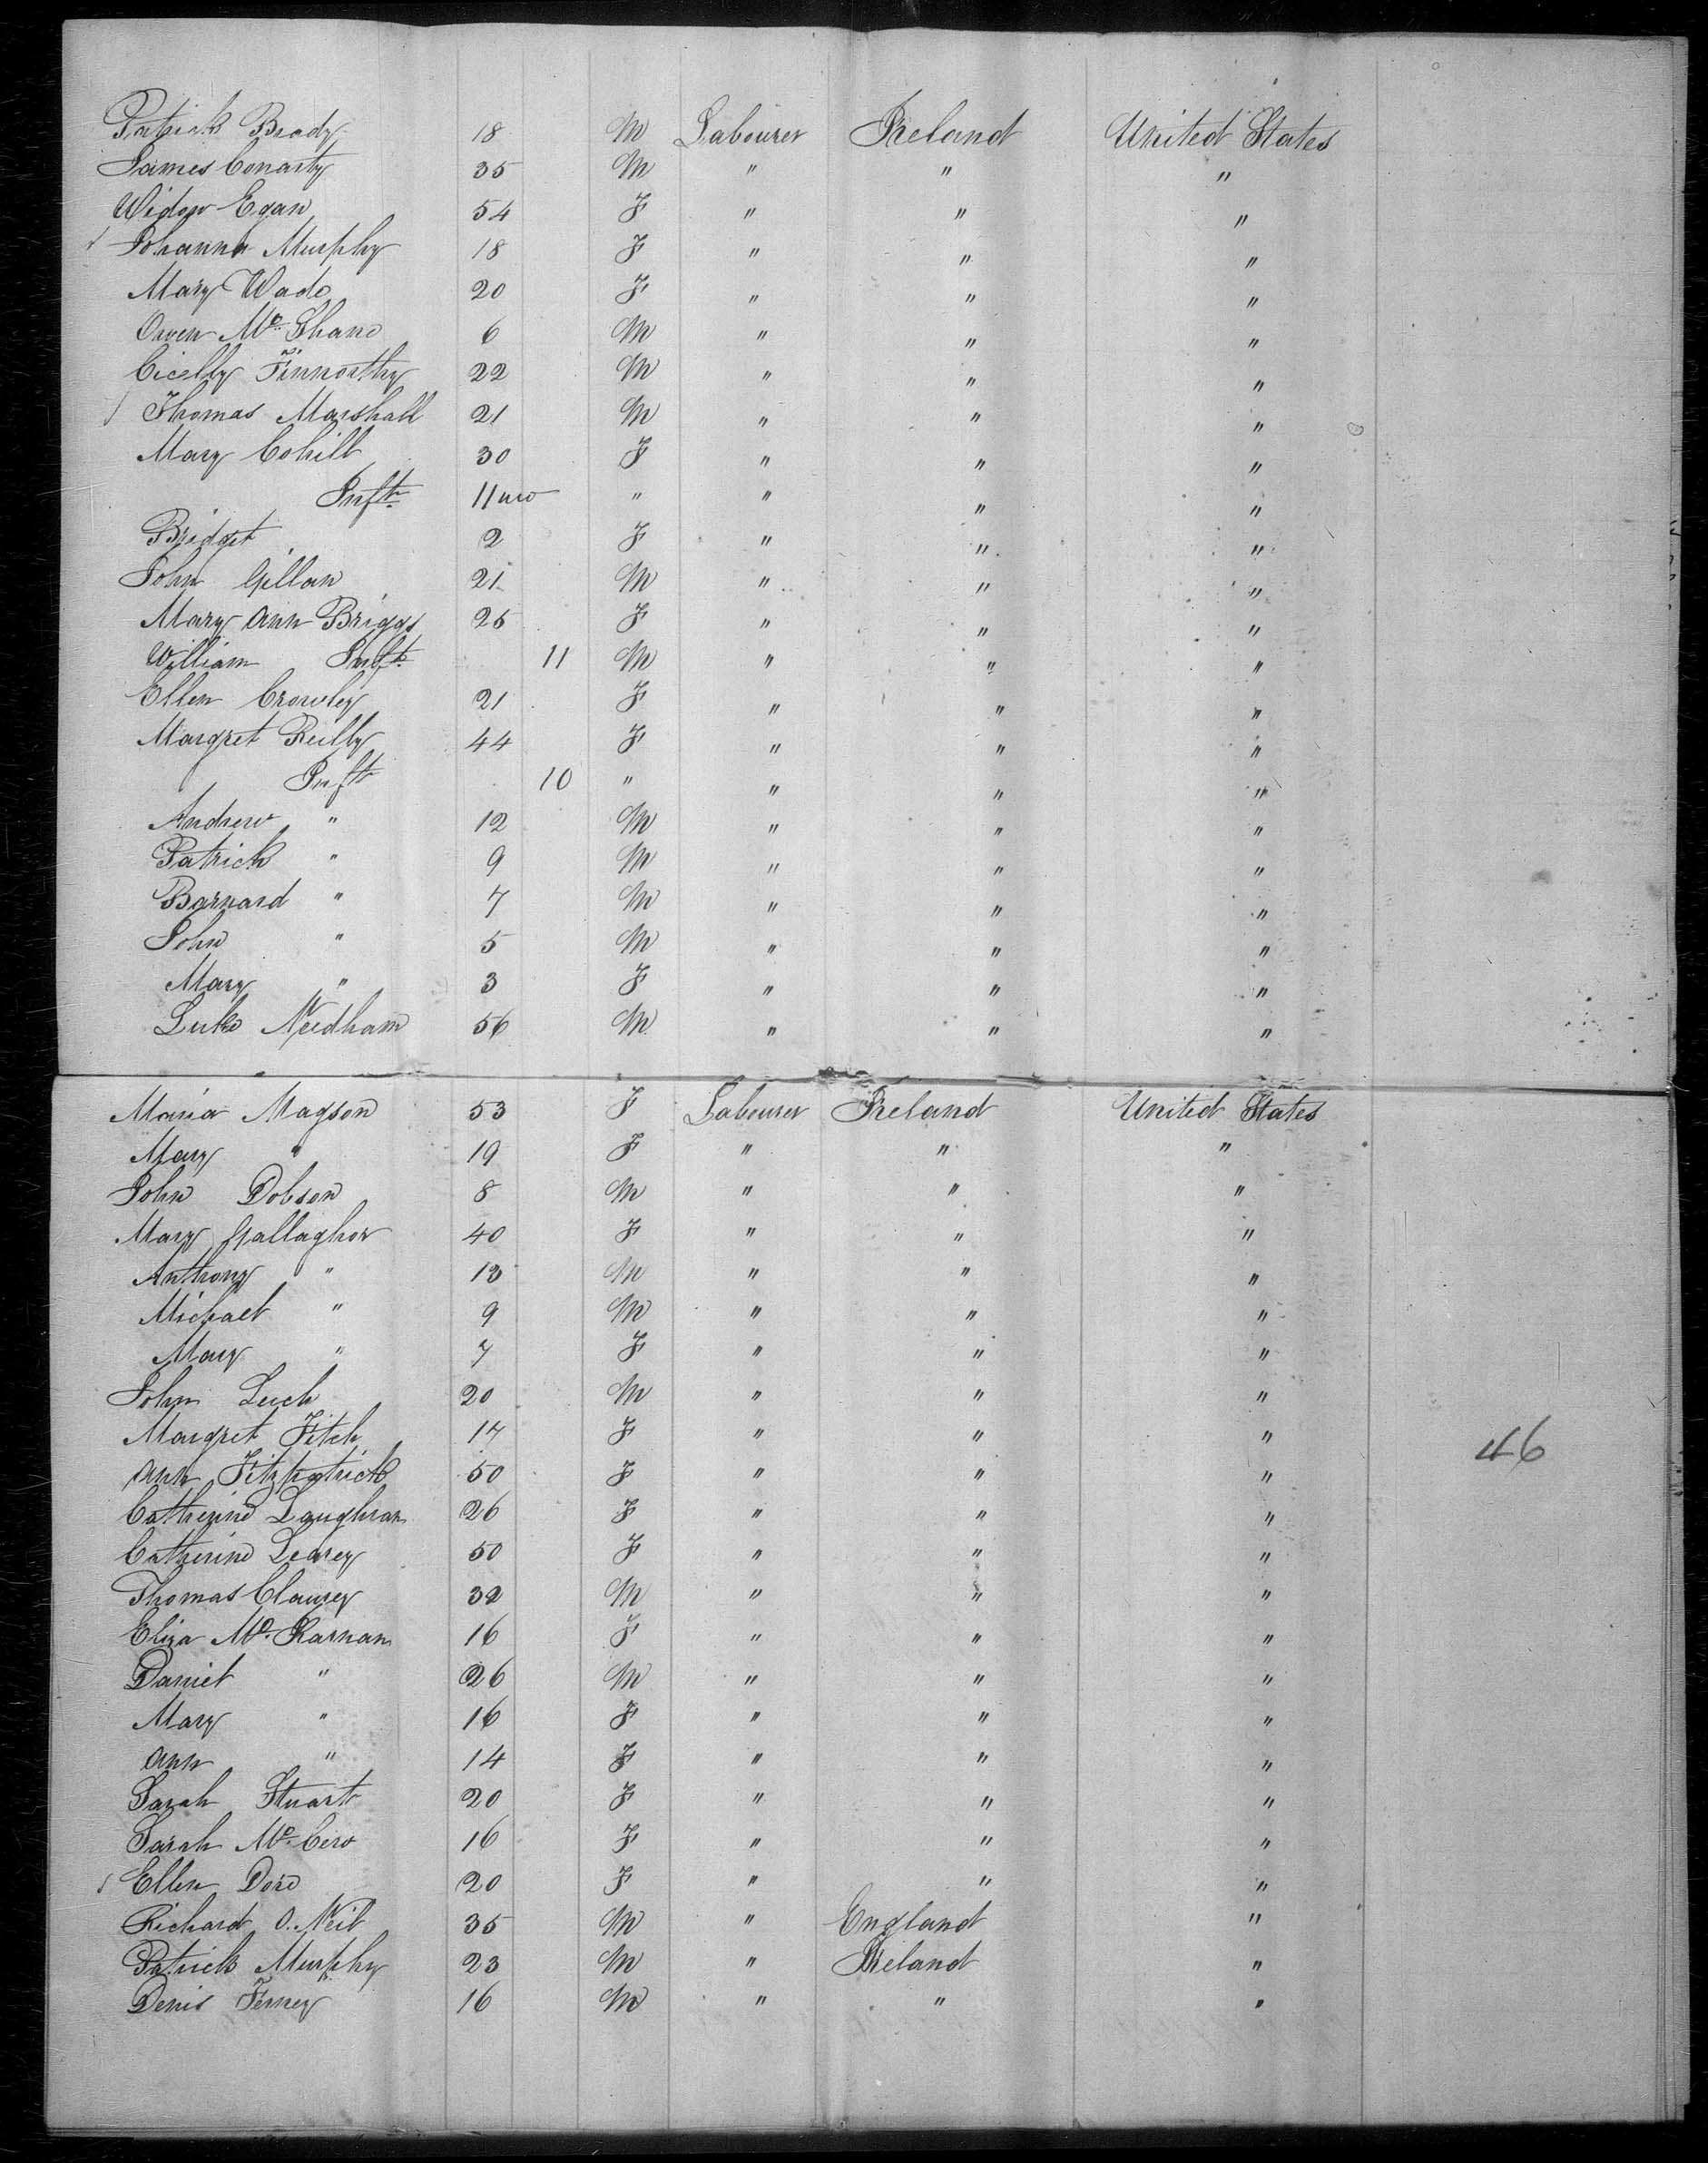 Patrick Brady 18 M Labourer Ireland United States
James Conarty 35 M " " "
Widow Egan 54 F " " "
Johanna Murphy 18 F " " "
Mary Wade 20 F " " "
Owen Mc Shane 6 M " " "
Cicelly Finnorthy 22 M " " "
Thomas Marshall 21 M " " "
Mary Cohill 30 F " " "
Inft 11 mo " " " "
Bridget 2 F " " "
John Gillan 21 M " " "
Mary Ann Briggs 25 F " " "
William Inft 11 M " " "
Ellen Crowley 21 F " " "
Margret Reilly 44 F " " "
Inft 10 " " " "
Andrew " 12 M " " "
Patrick " 9 M " " "
Barnard " 7 M " " "
John " 5 M " " "
Mary " 3 F " " "
Luke Needham 56 M " " "
Maria Magson 53 F Labourer Ireland United States
Mary " 19 F " " "
John Dobson 8 M " " "
Mary Gallagher 40 F " " "
Anthony " 13 M " " "
Michael " 9 M " " "
Mary " 7 F " " "
John Luch 20 M " " "
Margret Fitch 17 F " " "
46
Ann Fitzpatrick 50 F " " "
Catherine Laughran 26 F " " "
Catherine Learey 50 F " " "
Thomas Clausey 32 M " " "
Eliza Mc Karnan 16 F " " "
Daniel " 26 M " " "
Mary " 16 F " " "
Ann " 14 F " " "
Sarah Stuart 20 F " " "
Sarah Mc 16 F " " "
Ellen Dore 20 F " " "
Richard O. Neil 35 M " England "
Patrick Murphy 23 M " Ireland "
Denis Ferney 16 M " " "